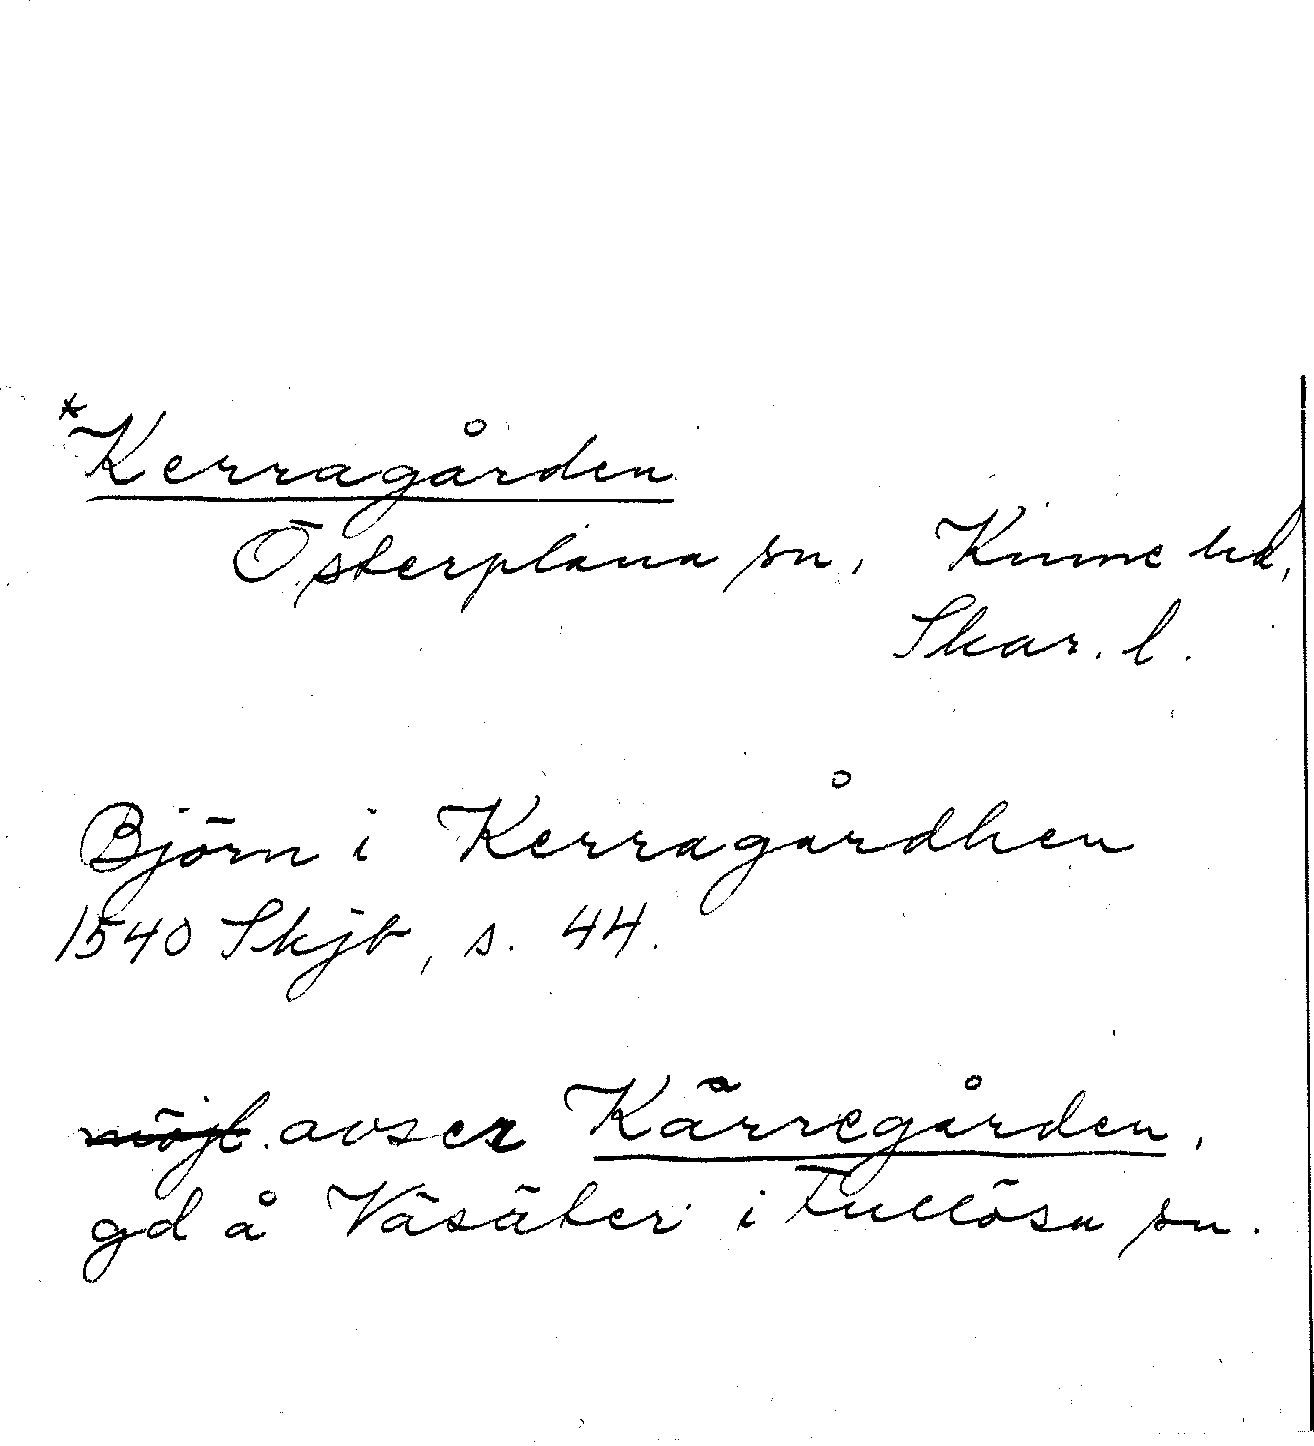 *Kerragården
Österplana sn, Kinne hd,
Skar. l.
Björn i Kerragårdhen
1540 Skjb, s. 44.
möjl. avser Kärregården,
gd å Väsäter i Fullösa sn.